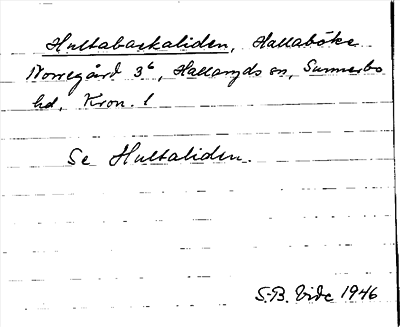 Hultabackaliden, Hallaböke
Norregård 3⁶, Hallaryds sn, Sunnerbo
hd, Kron. l
Se Hultaliden.
S-B. Vide 1946